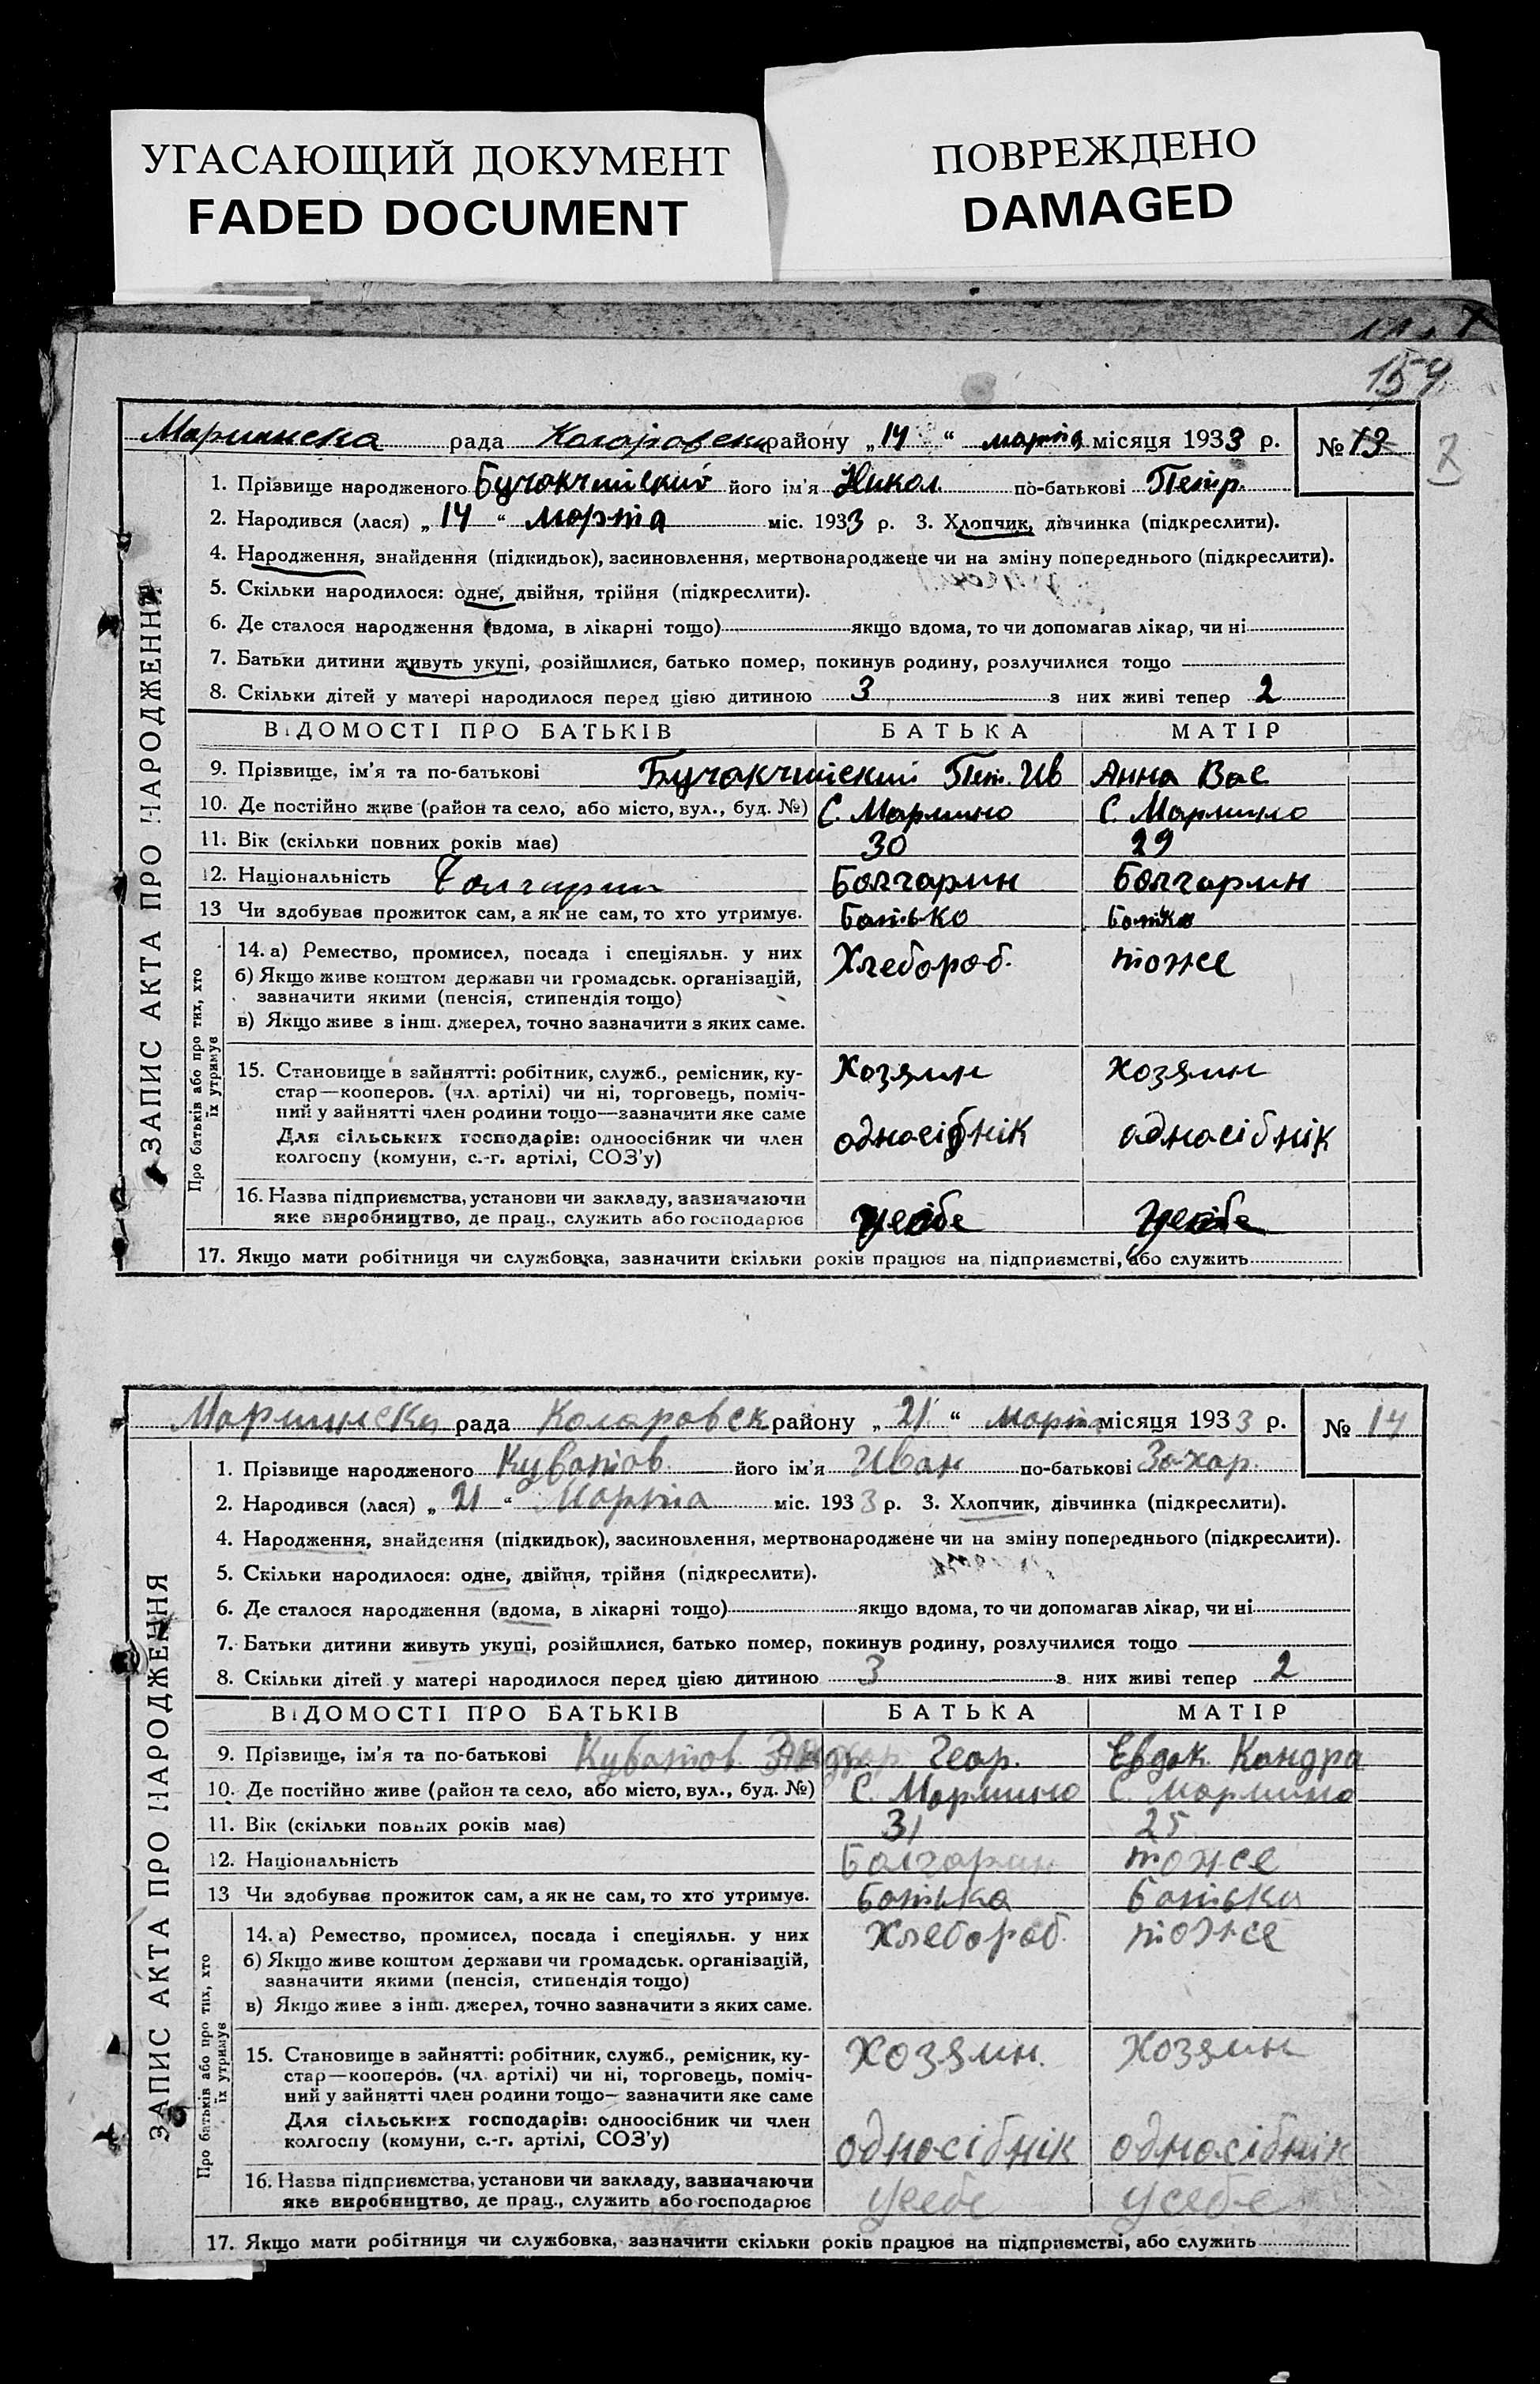 УГАСАЮЩИЙ ДОКУМЕНТ
FADED DOCUMENT
ПОВРЕЖДЕНО
DAMAGED
159
Мариинска рада Коларовск району „14“ марта місяця 1933 р. № 13
1. Прізвище народженого його ім'я Никол по-батькові Петр.
2. Народився (лася) „14“ марта міс. 1933 р. 3. Хлопчик, дівчинка (підкреслити).
4. Народження, знайдення (підкидьок), засиновлення, мертвонароджене чи на зміну попереднього (підкреслити).
5. Скільки народилося: одне, двійня, трійня (підкреслити).
6. Де сталося народження (вдома, в лікарні тощо) якщо вдома, то чи допомагав лікар, чи ні
7. Батьки дитини живуть укупі, розійшлися, батько помер, покинув родину, розлучилися тощо
8. Скільки дітей у матері народилося перед цією дитиною 3 з них живі тепер 2
ВІДОМОСТІ ПРО БАТЬКІВ БАТЬКА МАТІР
9. Прізвище, ім'я та по-батькові Пет. Ив Анна Вас
10. Де постійно живе (район та село, або місто, вул., буд. №) С. Марьино С. Марьино
11. Вік (скільки повних років має) 30 29
12. Національність Болгарин Болгарин Болгарин
13 Чи здобував прожиток сам, а як не сам, то хто утримує. Батько Батко
14. а) Ремество, промисел, посада і спеціяльн. у них Хлебороб. тоже
б) Якщо живе коштом держави чи громадськ. організацій,
зазначити якими (пенсія, стипендія тощо)
в) Якщо живе з інш. джерел, точно зазначити з яких саме.
15. Становище в зайнятті: робітник, служб., ремісник, ку- Хозяин хозяин
стар—кооперов. (чл. артілі) чи ні, торговець, поміч-
ний у зайнятті член родини тощо—зазначити яке саме
Для сільських господарів: одноосібник чи член односібнік односібнік
колгоспу (комуни, с.-г. артілі, СОЗ'у)
16. Назва підприємства, установи чи закладу, зазначаючи
яке виробництво, де прац., служить або господарює усебе усебе
17. Якщо мати робітниця чи службовка, зазначити скільки років працює на підприємстві, або служить
ЗАПИС АКТА ПРО НАРОДЖЕННЯ
Про батьків або про тих, хто
їх утримує
Мариинска рада Коларовск району „21“ Марта місяця 1933 р. № 14
1. Прізвище народженого Куватов його ім'я Иван по-батькові Захар.
2. Народився (лася) „21“ Марта міс. 1933 р. 3. Хлопчик, дівчинка (підкреслити).
4. Народження, знайдення (підкидьок), засиновлення, мертвонароджене чи на зміну попереднього (підкреслити).
5. Скільки народилося: одне, двійня, трійня (підкреслити).
6. Де сталося народження (вдома, в лікарні тощо) якщо вдома, то чи допомагав лікар, чи ні
7. Батьки дитини живуть укупі, розійшлися, батько помер, покинув родину, розлучилися тощо
8. Скільки дітей у матері народилося перед цією дитиною 3 з них живі тепер 2
ВІДОМОСТІ ПРО БАТЬКІВ БАТЬКА МАТІР
9. Прізвище, ім'я та по-батькові Куватов Захар Геор. Евдок. Кондра
10. Де постійно живе (район та село, або місто, вул., буд. №) С. Марьино С. Марьино
11. Вік (скільки повних років має) 31 25
12. Національність Болгарин тоже
13 Чи здобував прожиток сам, а як не сам, то хто утримує. Батька батька
14. а) Ремество, промисел, посада і спеціяльн. у них Хлебороб. тоже
б) Якщо живе коштом держави чи громадськ. організацій,
зазначити якими (пенсія, стипендія тощо)
в) Якщо живе з інш. джерел, точно зазначити з яких саме.
15. Становище в зайнятті: робітник, служб., ремісник, ку- Хозяин. Хозяин
стар—кооперов. (чл. артілі) чи ні, торговець, поміч-
ний у зайнятті член родини тощо—зазначити яке саме
Для сільських господарів: одноосібник чи член односібнік односібнік
колгоспу (комуни, с.-г. артілі, СОЗ'у)
16. Назва підприємства, установи чи закладу, зазначаючи
яке виробництво, де прац., служить або господарює усебе усебе
17. Якщо мати робітниця чи службовка, зазначити скільки років працює на підприємстві, або служить
ЗАПИС АКТА ПРО НАРОДЖЕННЯ
Про батьків або про тих, хто
їх утримує